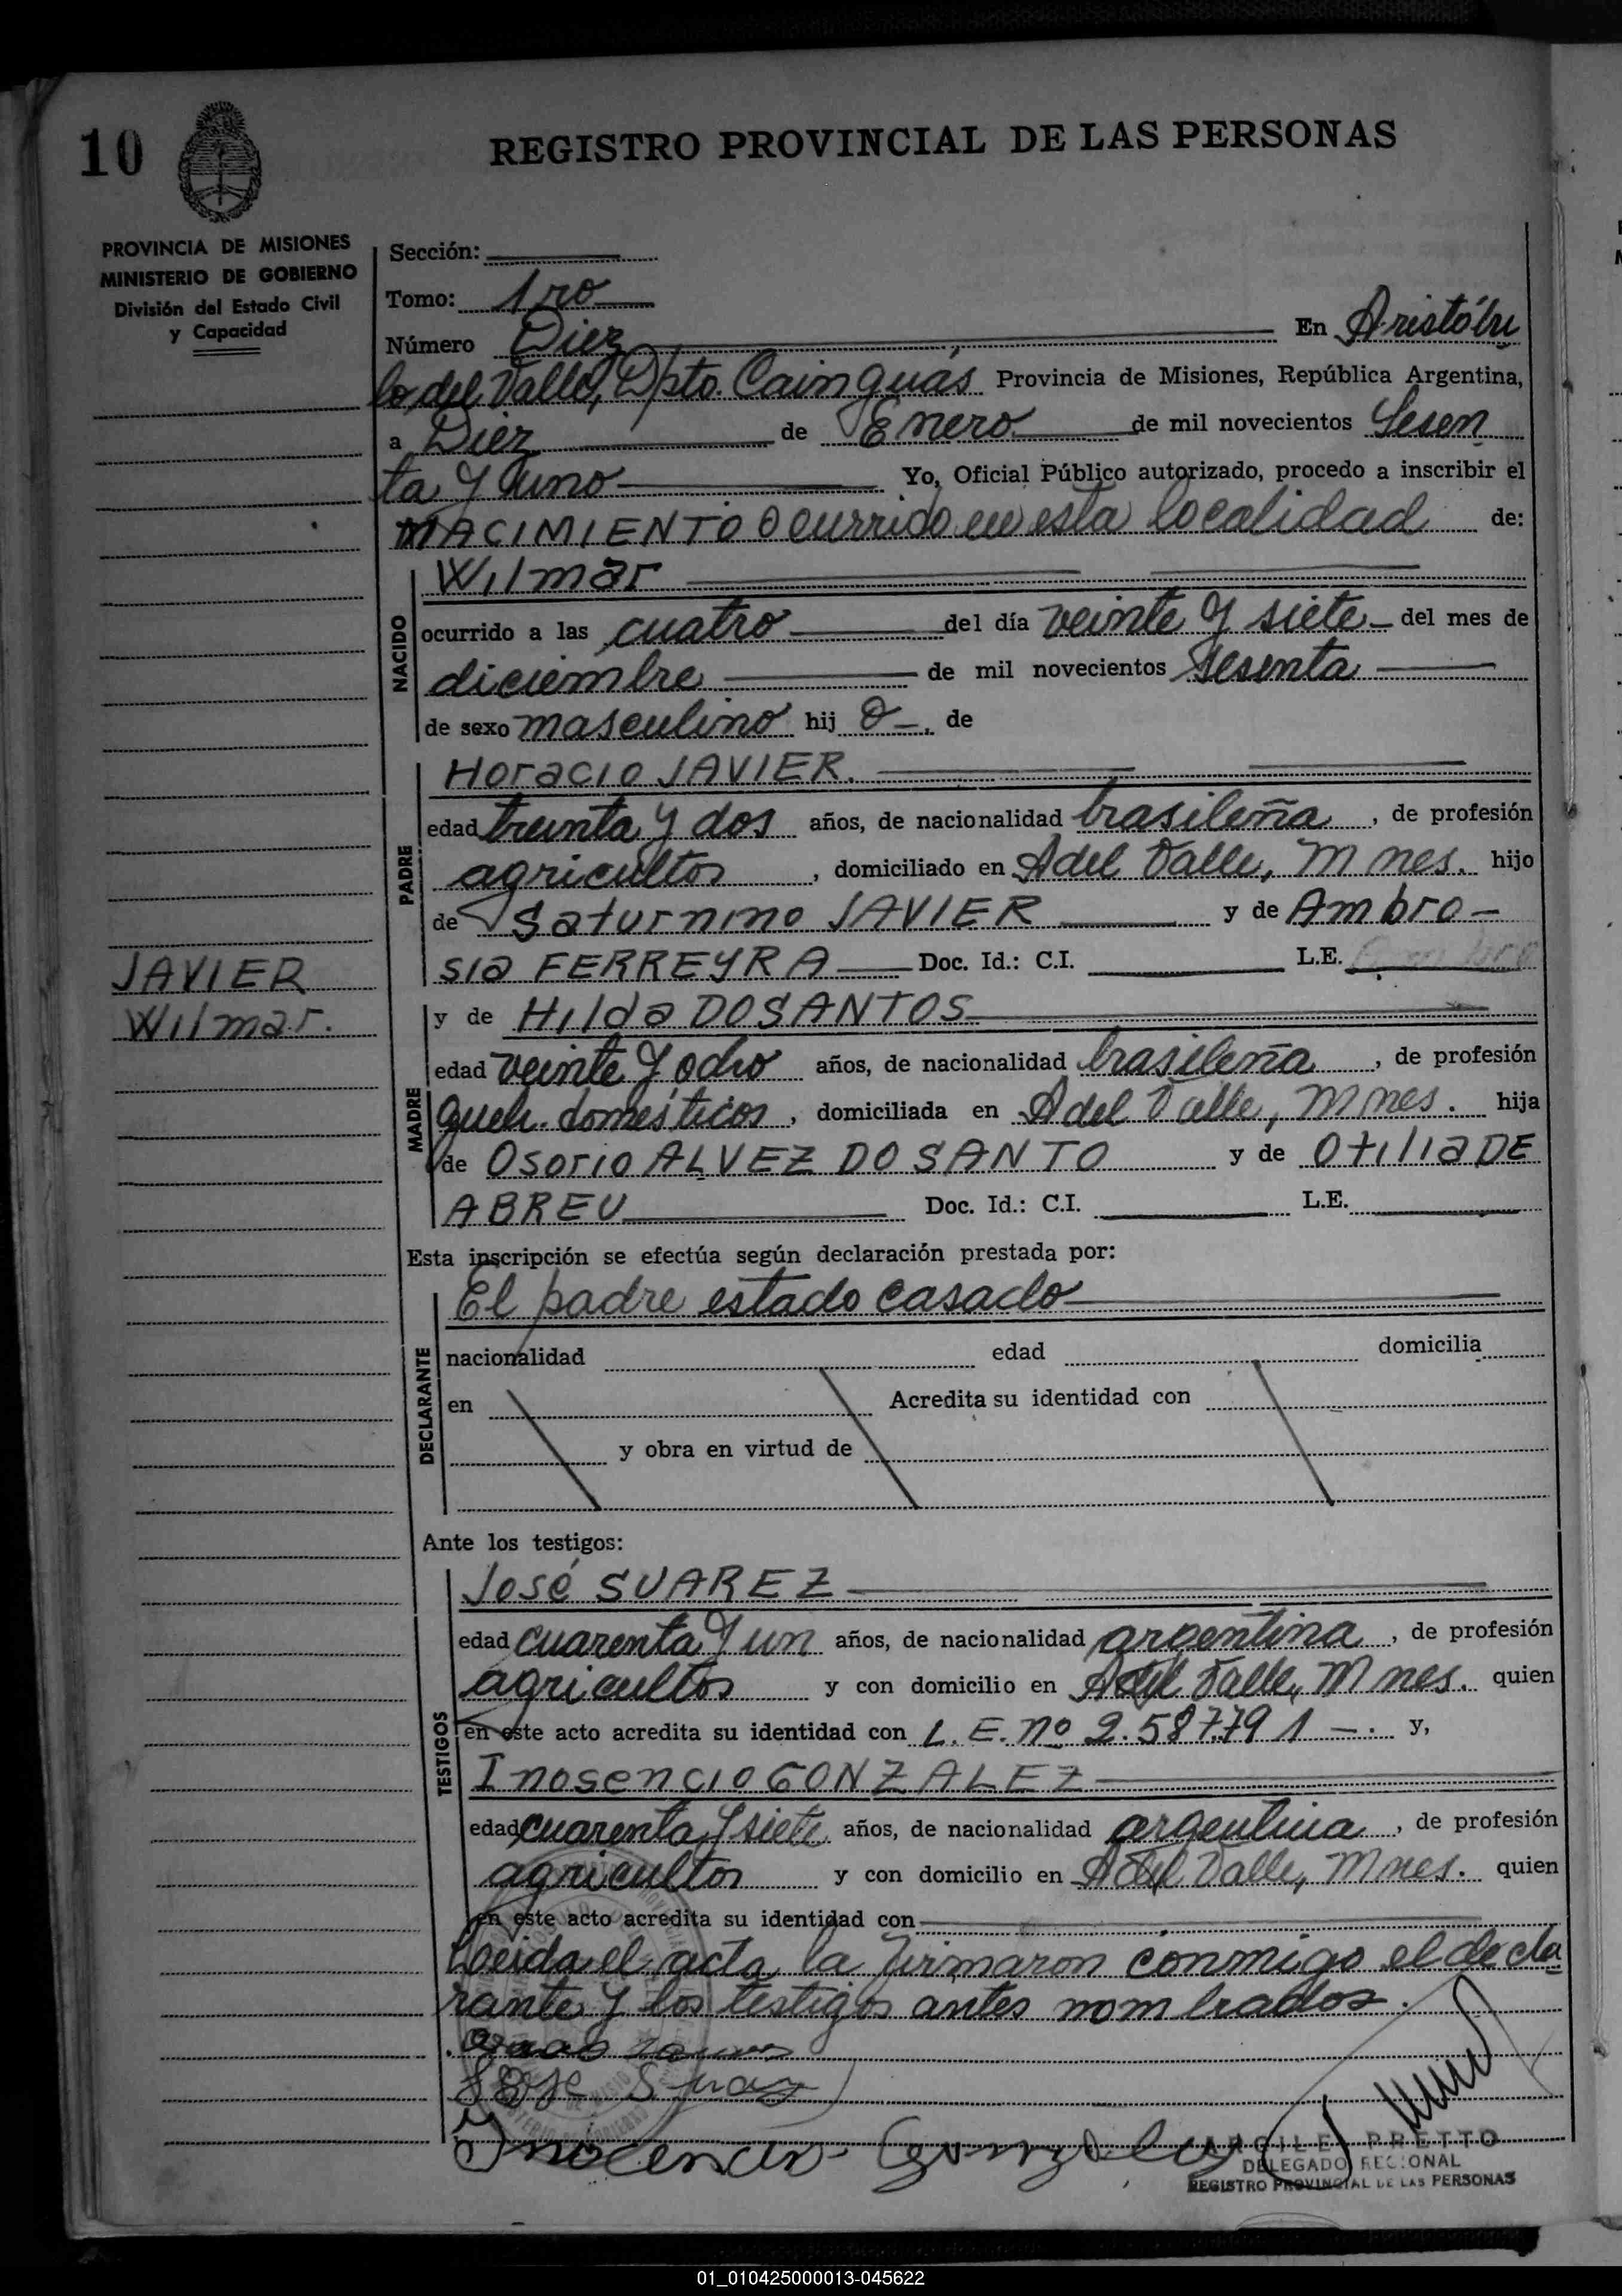 10
REGISTRO PROVINCIAL DE LAS PERSONAS
PROVINCIA DE MISIONES
MINISTERIO DE GOBIERNO
División del Estado Civil
y Capacidad
Sección:
Tomo: 1ro
Número Diez En Aristóbu
lo del Valle, Dpto. Cainguás Provincia de Misiones, República Argentina,
a Diez de Enero de mil novecientos Sesen
ta y uno Yo, Oficial Público autorizado, procedo a inscribir el
NACIMIENTO ocurrido en esta localidad de:
NACIDO
Wilmar
ocurrido a las cuatro del día veinte y siete del mes de
diciembre de mil novecientos sesenta
de sexo masculino hij o de
PADRE
Horacio JAVIER.
edad treinta y dos años, de nacionalidad brasileña, de profesión
agricultor, domiciliado en A del Valle, Mnes. hijo
de Saturnino JAVIER y de Ambro-
sia FERREYRA Doc. Id.: C.I. L.E.
JAVIER
Wilmar.
MADRE
y de Hilda DOSANTOS
edad veinte y ocho años, de nacionalidad brasileña, de profesión
queh. domésticos, domiciliada en A del Valle, Mnes. hija
de Osorio ALVEZ DO SANTO y de Otilia DE
ABREU Doc. Id.: C.I. L.E.
Esta inscripción se efectúa según declaración prestada por:
DECLARANTE
El padre estado casado
nacionalidad edad domicilia
en Acredita su identidad con
y obra en virtud de
Ante los testigos:
TESTIGOS
José SUAREZ
edad cuarenta y un años, de nacionalidad argentina, de profesión
agricultor y con domicilio en A del Valle, Mnes. quien
en este acto acredita su identidad con L.E. nº 2.587.791 y,
Inosencio GONZALEZ
edad cuarenta y siete años, de nacionalidad argentina, de profesión
agricultor y con domicilio en A del Valle, Mnes. quien
en este acto acredita su identidad con
Leida el acta la firmaron conmigo el decla
rante y los testigos antes nombrados.
Jose Suarez
Inocencio Gonzalez
PRETTO
DELEGADO REGIONAL
REGISTRO PROVINCIAL DE LAS PERSONAS
01_010425000013-045622